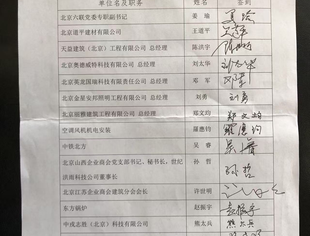 单位名及职务 姓名 签到
北京六联党委专职副书记 姜瑜 姜瑜
北京道平建材有限公司 王道平
天益建筑（北京）工程有限公司 总经理 陈洪宇
北京奥德威特科技有限公司 总经理 刘太华 刘太华
北京英北国瑞科技有限公司 总经理 邓军 邓军
北京金星安邦照明工程有限公司 总经理 刘勇 刘勇
北京丽雅建筑工程有限公司 总经理 郑文均 郑文均
空调风机机电安装 羅應鈞 羅應鈞
中铁北方 吴睿
北京山西企业商会党支部书记、秘书长、世纪 孙哲 孙哲
洪南科技有限公司董事长
北京江苏企业商会建筑分会会长 许世明
东方锅炉 赵振宇 赵振宇
中浅志胜（北京）科技有限公司 熊太兵 熊太兵